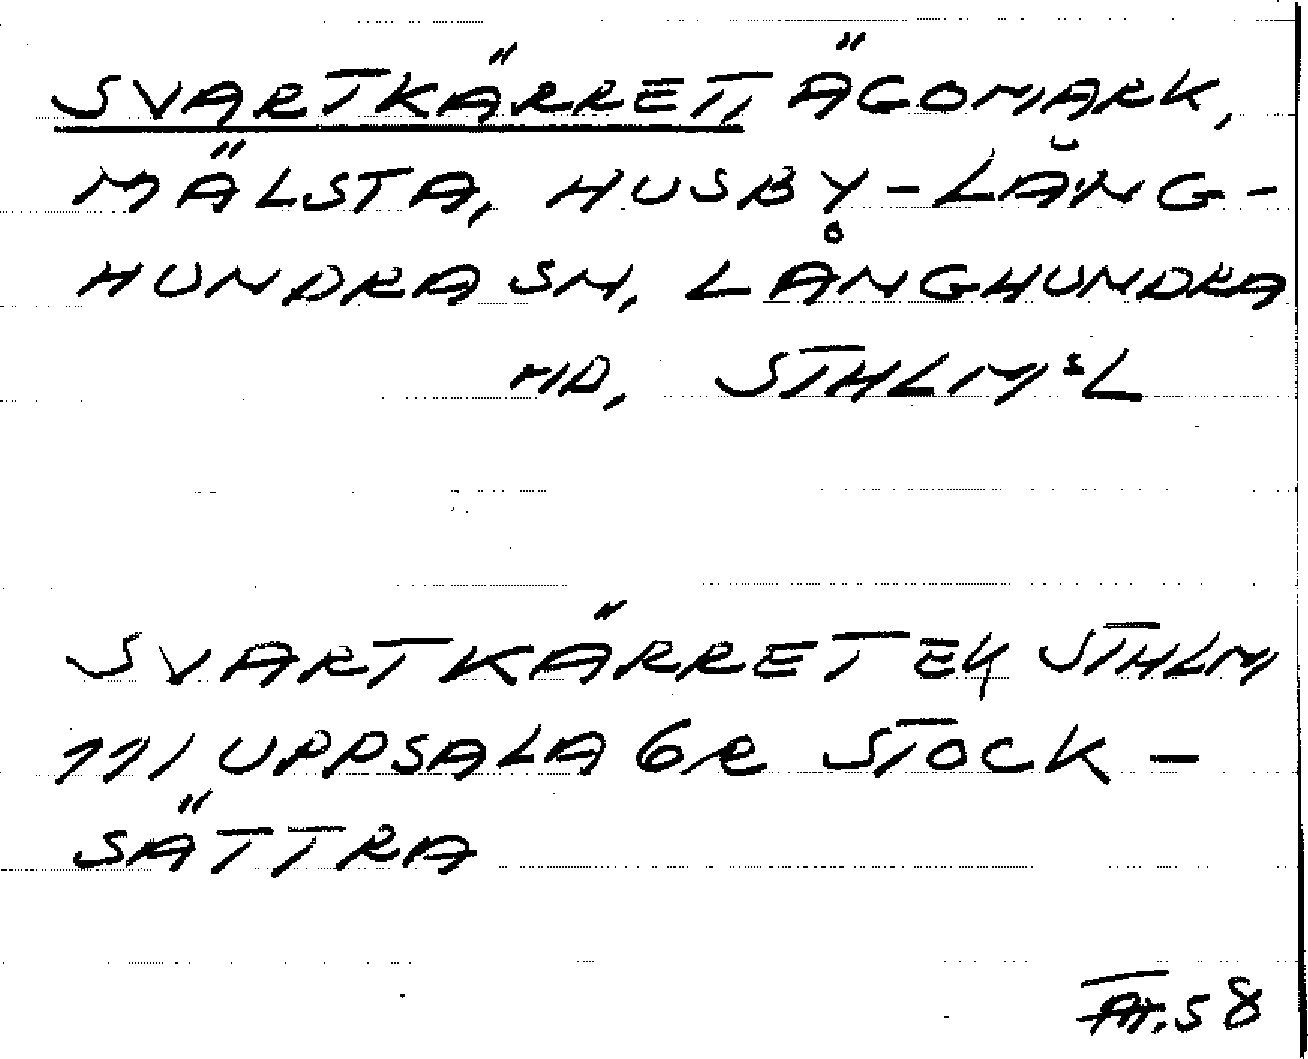 SVARTKÄRRET, ÄGOMARK,
MÄLSTA, HUSBY-LÅNG-
HUNDRA SN, LÅNGHUNDRA
HD, STHLMSL
SVARTKÄRRET EK STHLM
111 UPPSALA 6R STOCK-
SÄTTRA
58